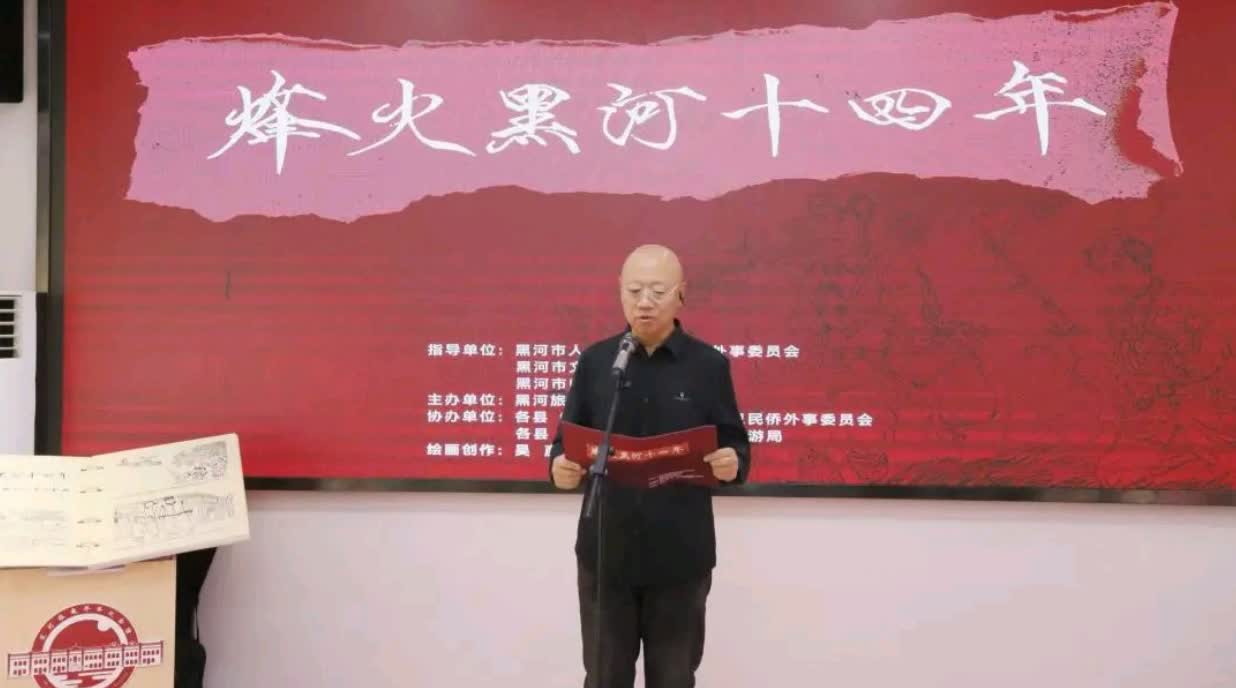 烽火黑河十四年
指导单位：黑河市人 外事委员会
黑河市文
黑河市
主办单位：黑河旅
协办单位：各县 民侨外事委员会
各县 游局
绘画创作：吴
烽火黑河十四年